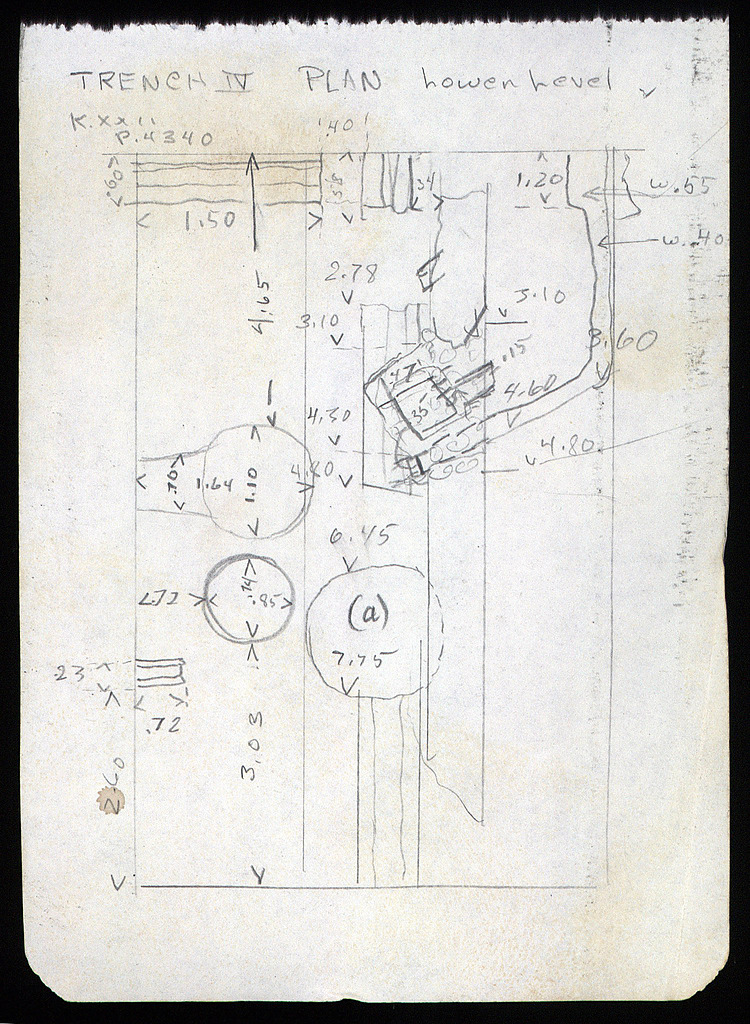 TRENCH IV PLAN Lower Level
K.XXII
P.4340
.40
.60
.58
.34
1.20
w.55
1.50
w.40
4.65
2.78
3.10
3.10
3.60
.15
.47
.35
4.60
4.30
4.80
4.40
.70
1.64
1.10
6.45
.74
.85
(a)
7.75
.23
.72
3.03
2.60